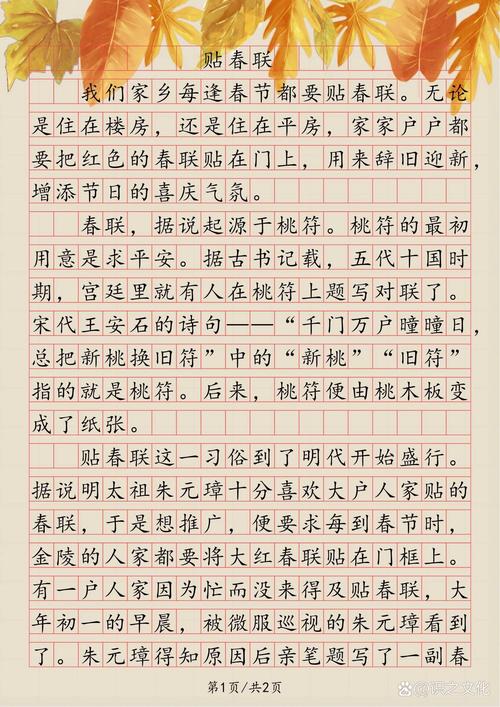 贴春联
我们家乡每逢春节都要贴春联。无论
是住在楼房，还是住在平房，家家户户都
要把红色的春联贴在门上，用来辞旧迎新，
增添节日的喜庆气氛。
春联，据说起源于桃符。桃符的最初
用意是求平安。据古书记载，五代十国时
期，宫廷里就有人在桃符上题写对联了。
宋代王安石的诗句——“千门万户曈曈日，
总把新桃换旧符”中的“新桃”“旧符”
指的就是桃符。后来，桃符便由桃木板变
成了纸张。
贴春联这一习俗到了明代开始盛行。
据说明太祖朱元璋十分喜欢大户人家贴的
春联，于是想推广，便要求每到春节时，
金陵的人家都要将大红春联贴在门框上。
有一户人家因为忙而没来得及贴春联，大
年初一的早晨，被微服巡视的朱元璋看到
了。朱元璋得知原因后亲笔题写了一副春
第1页/共2页
Baidu百科 @识之文化